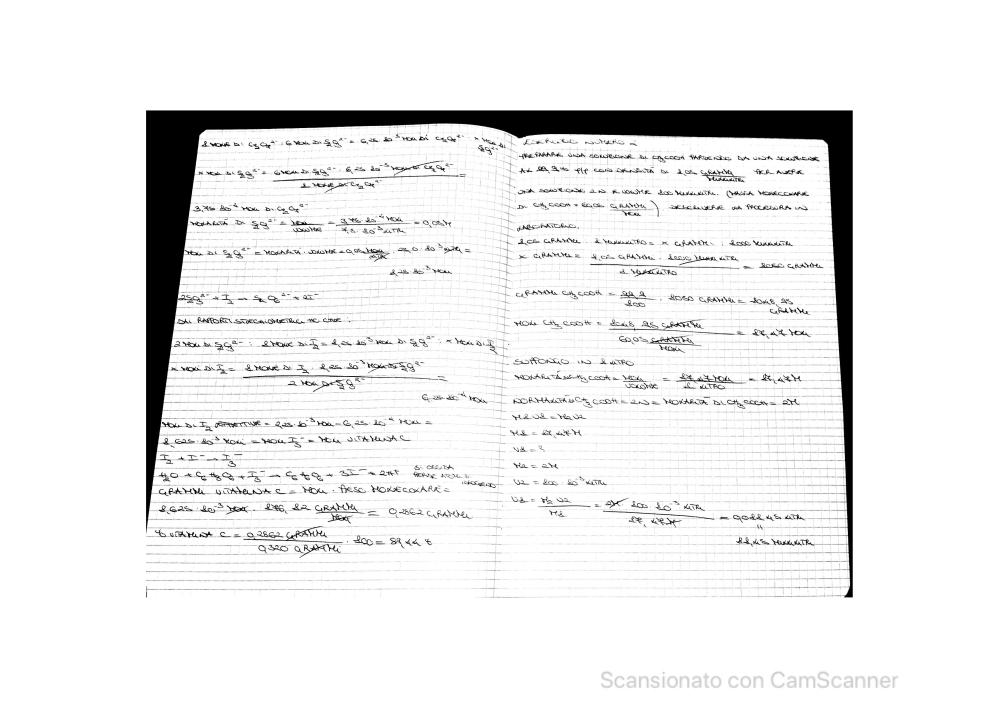 1 MOLE DI Cr2O7 2- : 6 MOLI DI S2O3 2- = 6,25 10^-5 MOLI DI Cr2O7 2- : x MOLI DI S2O3 2-
x MOLI DI S2O3 2- = 6 MOLI DI S2O3 2- · 6,25 10^-5 MOLI DI Cr2O7 2- =
1 MOLE DI Cr2O7 2-
3,75 10^-4 MOLI DI
MOLARITÀ DI S2O3 2- = MOLI / VOLUME = 3,75 10^-4 MOLI / LITRI = 0,05M
MOLI DI S2O3 2- = MOLARITÀ · VOLUME = 0,05 MOLI / LITRI · 10^-3 LITRI =
1,25 10^-3 MOLI
2 S2O3 2- + I2 → S4O6 2- + 2I-
DAI RAPPORTI STECHIOMETRICI HO CHE:
2 MOLI DI S2O3 2- : 1 MOLE DI I2 = 1,25 10^-3 MOLI DI S2O3 2- : x MOLI DI I2
x MOLI DI I2 = 1 MOLE DI I2 · 1,25 10^-3 MOLI DI S2O3 2- =
2 MOLI DI S2O3 2-
6,25 10^-4 MOLI
MOLI DI I2 EFFETTIVE = 2,25 10^-3 MOLI - 6,25 10^-4 MOLI =
1,625 10^-3 MOLI = MOLI I3- = MOLI VITAMINA C
I2 + I- → I3-
H2O + C6H8O6 + I3- → C6H6O7 + 3I- + 2H+ SI OSSIDA
GRAMMI VITAMINA C = MOLI · PESO MOLECOLARE =
1,625 10^-3 MOLI · 176,12 GRAMMI / MOLI = 0,2862 GRAMMI
% VITAMINA C = 0,2862 GRAMMI / 0,320 GRAMMI · 100 = 89,44 %
ESERCIZIO NUMERO 2
PREPARARE UNA SOLUZIONE DI CH3COOH PARTENDO DA UNA SOLUZIONE
AL 99,9 % P/P CON DENSITÀ DI 1,05 GRAMMI / MILLILITRO PER AVERE
UNA SOLUZIONE 2N A VOLUME 100 MILLILITRI. (MASSA MOLECOLARE
DI CH3COOH = 60,05 GRAMMI / MOLI) DESCRIVERE LA PROCEDURA IN
LABORATORIO.
1,05 GRAMMI : 1 MILLILITRO = x GRAMMI : 1000 MILLILITRI
x GRAMMI = 1,05 GRAMMI · 1000 MILLILITRI / 1 MILLILITRO = 1050 GRAMMI
GRAMMI CH3COOH = 99,9 / 100 · 1050 GRAMMI = 1048,95 GRAMMI
MOLI CH3COOH = 1048,95 GRAMMI / 60,05 GRAMMI / MOLI = 17,47 MOLI
SUPPONGO IN 1 LITRO
MOLARITÀ CH3COOH = MOLI / VOLUME = 17,47 MOLI / 1 LITRO = 17,47M
NORMALITÀ CH3COOH = 2N = MOLARITÀ DI CH3COOH = 2M
M1 V1 = M2 V2
M1 = 17,47M
V1 = ?
M2 = 2M
V2 = 100 · 10^-3 LITRI
V1 = M2 V2 / M1 = 2M · 100 10^-3 LITRI / 17,47M = 0,01145 LITRI
=
11,45 MILLILITRI
Scansionato con CamScanner